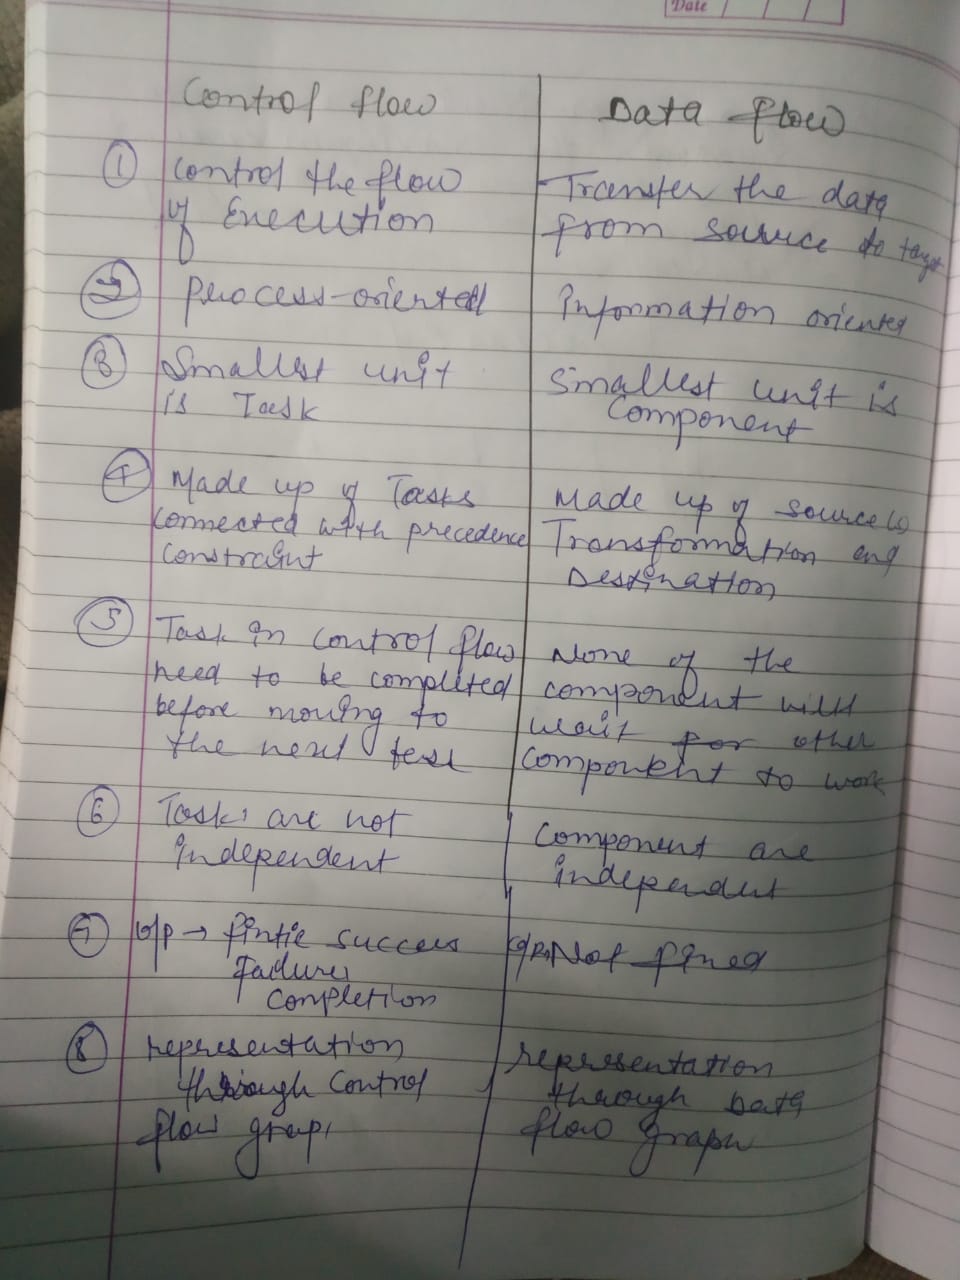 Date
Control flow
Data flow
① Control the flow
of Execution
Transfer the data
from source to
② Process-oriented
Information oriented
③ Smallest unit
is Task
Smallest unit is
Component
④ Made up of Tasks
connected with precedence
constraint
Made up of source
Transformation and
Destination
⑤ Task in control flow
need to be completed
before moving to
the next
None of the
component will
wait for other
component to work
⑥ Tasks are not
independent
Component are
independent
⑦ o/p → success
failure
completion
Not fixed
⑧ representation
through control
flow
representation
through Data
flow graph